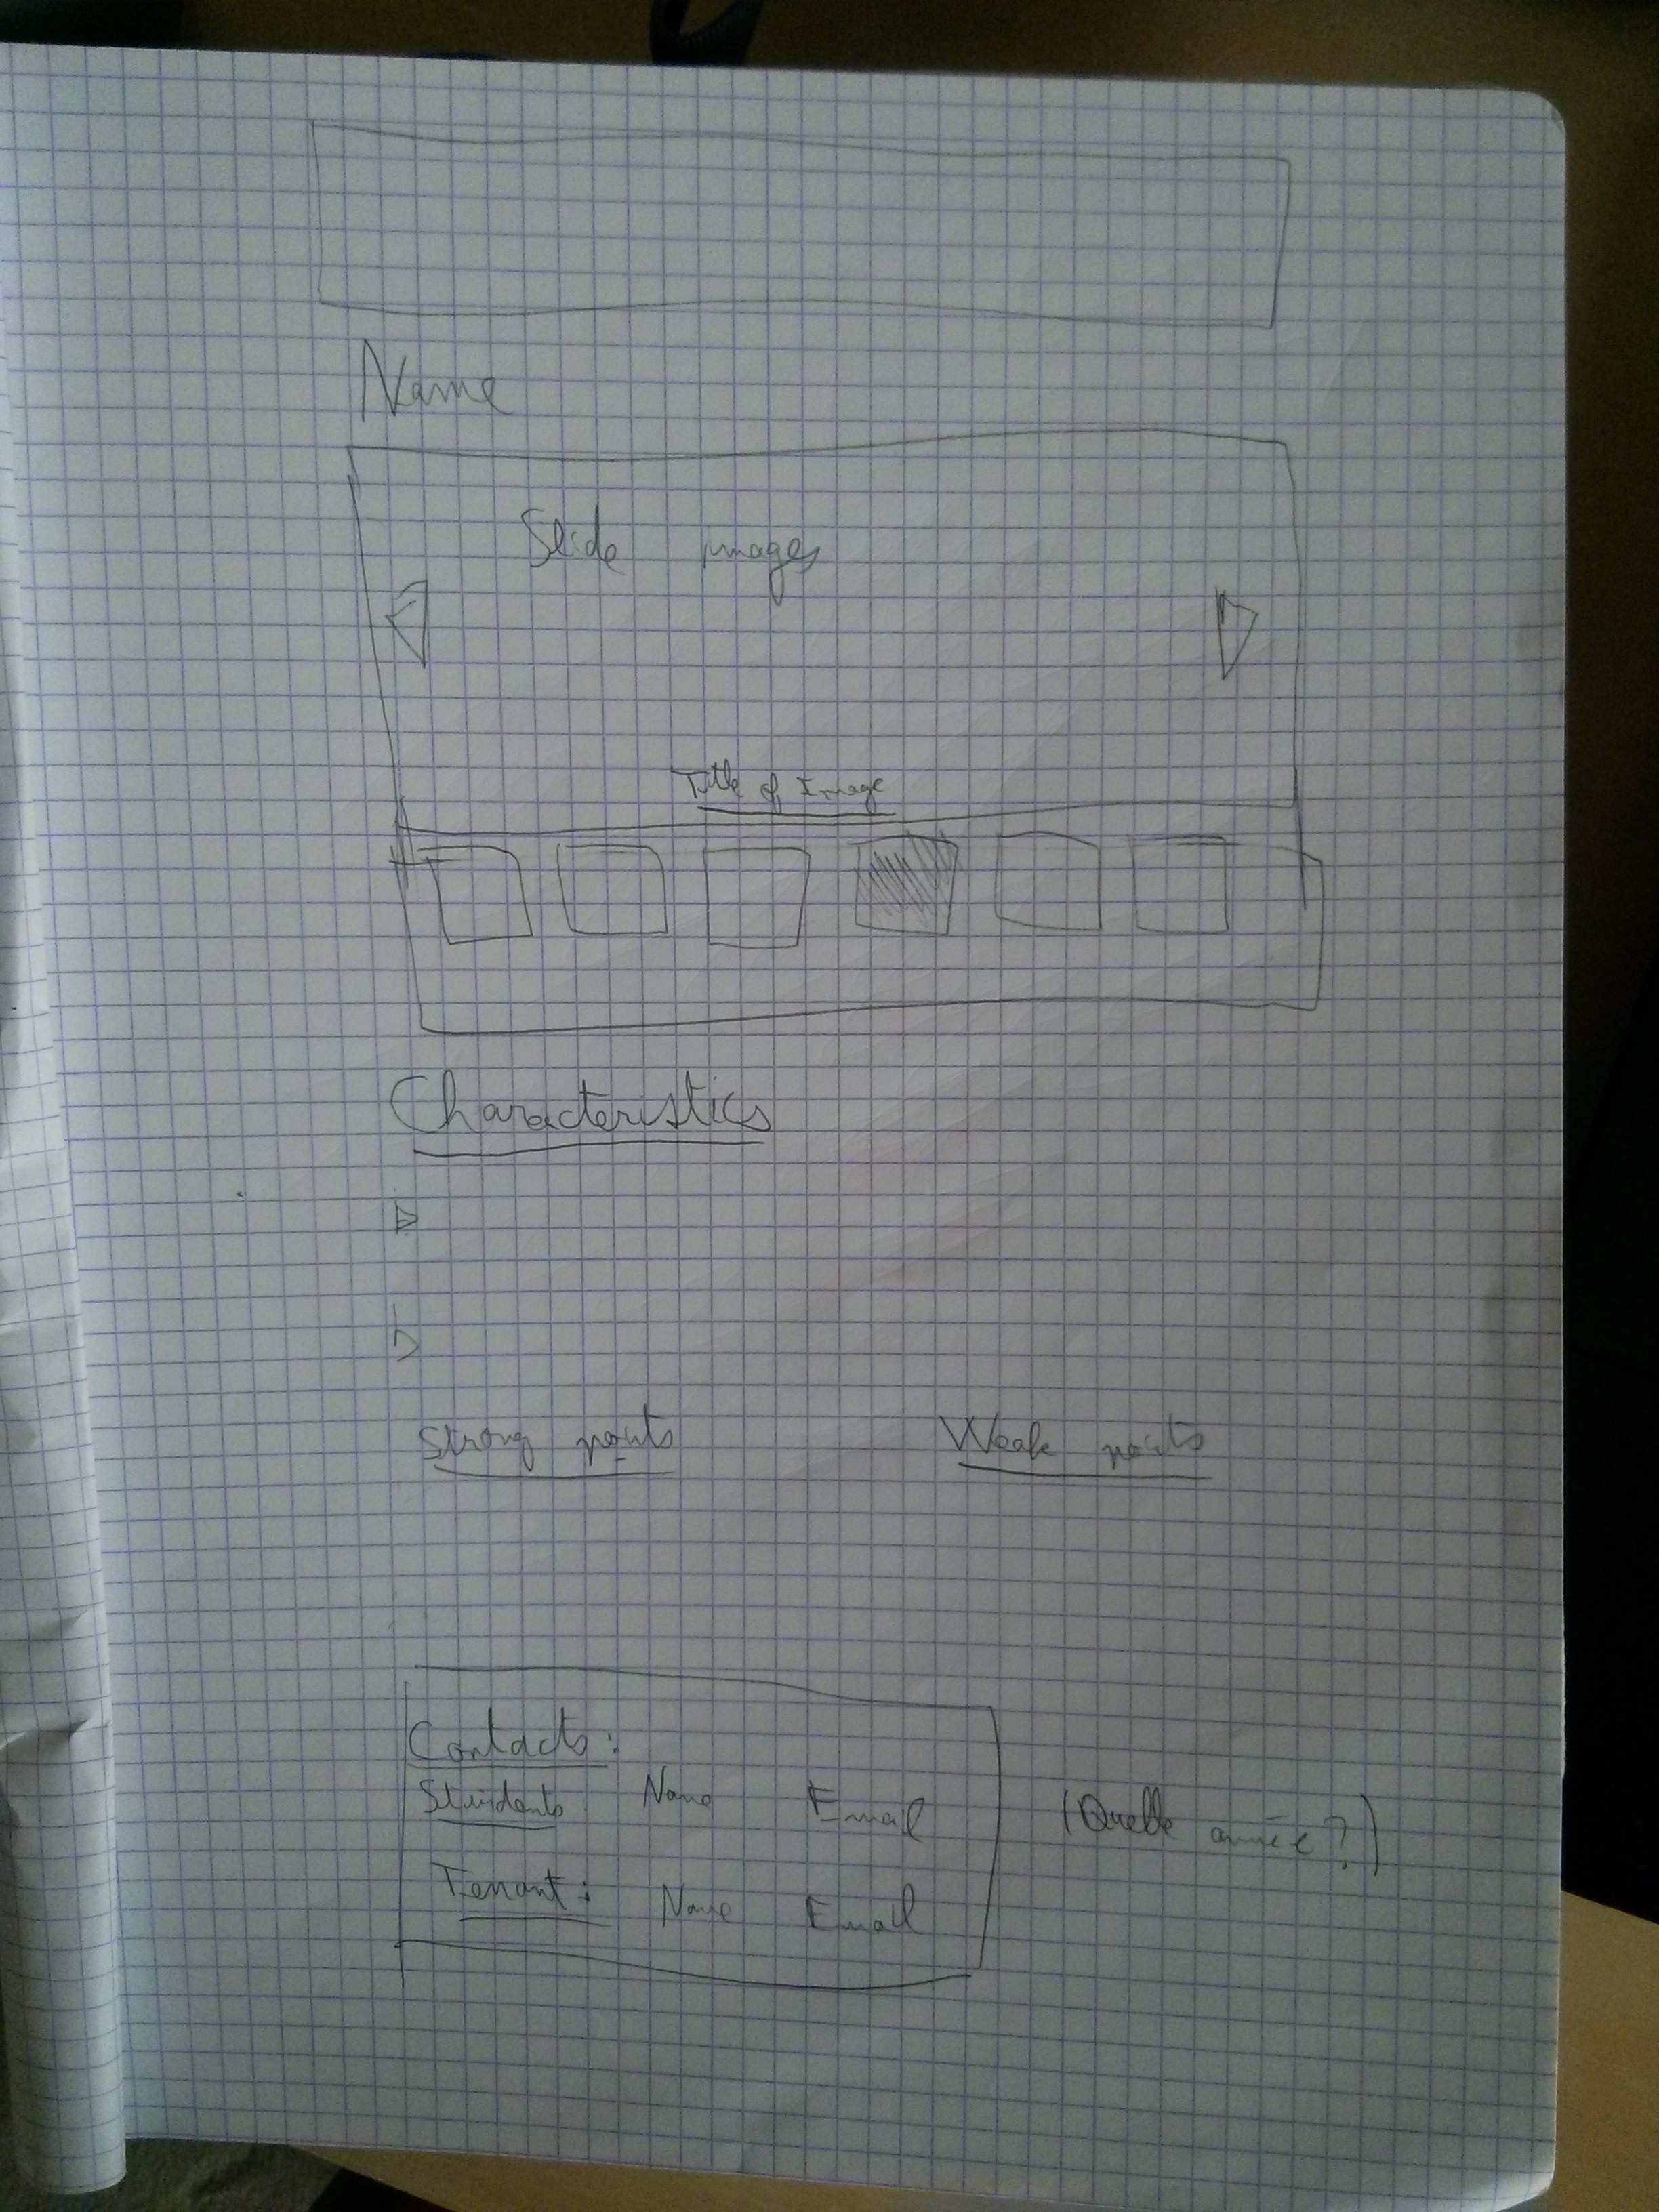 Name
Slide images
Title of Image
Characteristics
Strong points Weak points
Contacts :
Students Name Email (Quelle année ?)
Tenant : Name Email